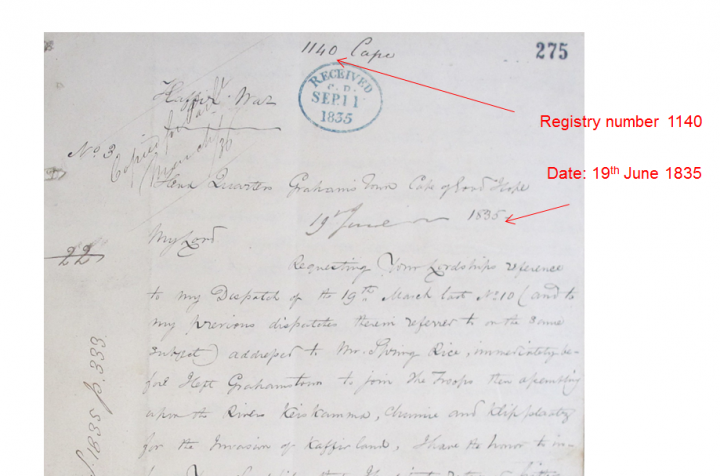 1140 Cape
275
RECEIVED
C.D.
SEP 11
1835
Registry number 1140
Kaffir War
No. 3
Copied for
Date: 19th June 1835
Head Quarters Grahams Town Cape of Good Hope
19th June 1835
My Lord
22
Requesting Your Lordships reference
to my Despatch of the 19th March last No 10 (and to
my previous dispatches therein referred to on the same
subject) addressed to Mr. Spring Rice, immediately be-
fore I left Grahamstown to join the Troops then assembling
upon the Rivers Keiskamma, Chumie and Klipplaats
for the Invasion of Kaffirland, I have the honor to in-
1835 P. 333